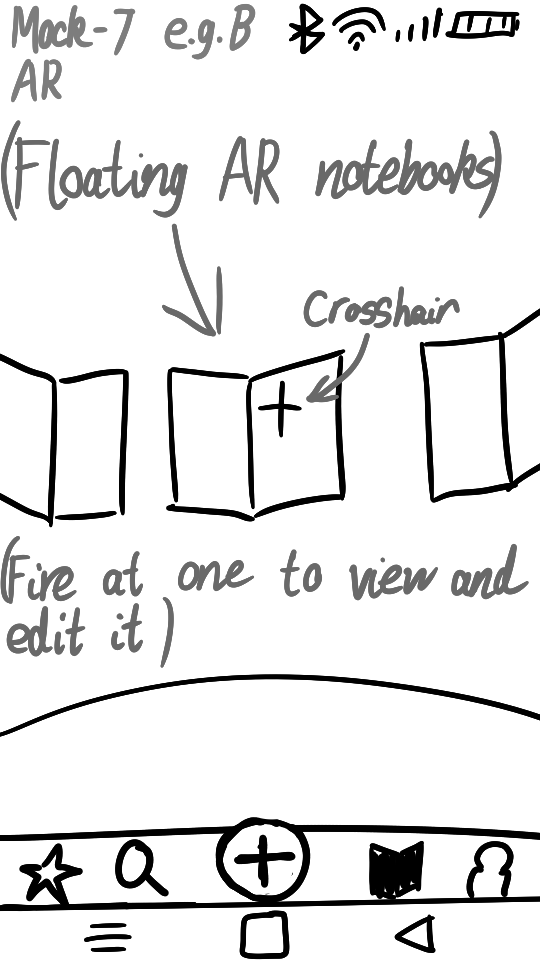 Mock-7 e.g.B
AR
(Floating AR notebooks)
Crosshair
(Fire at one to view and
edit it)